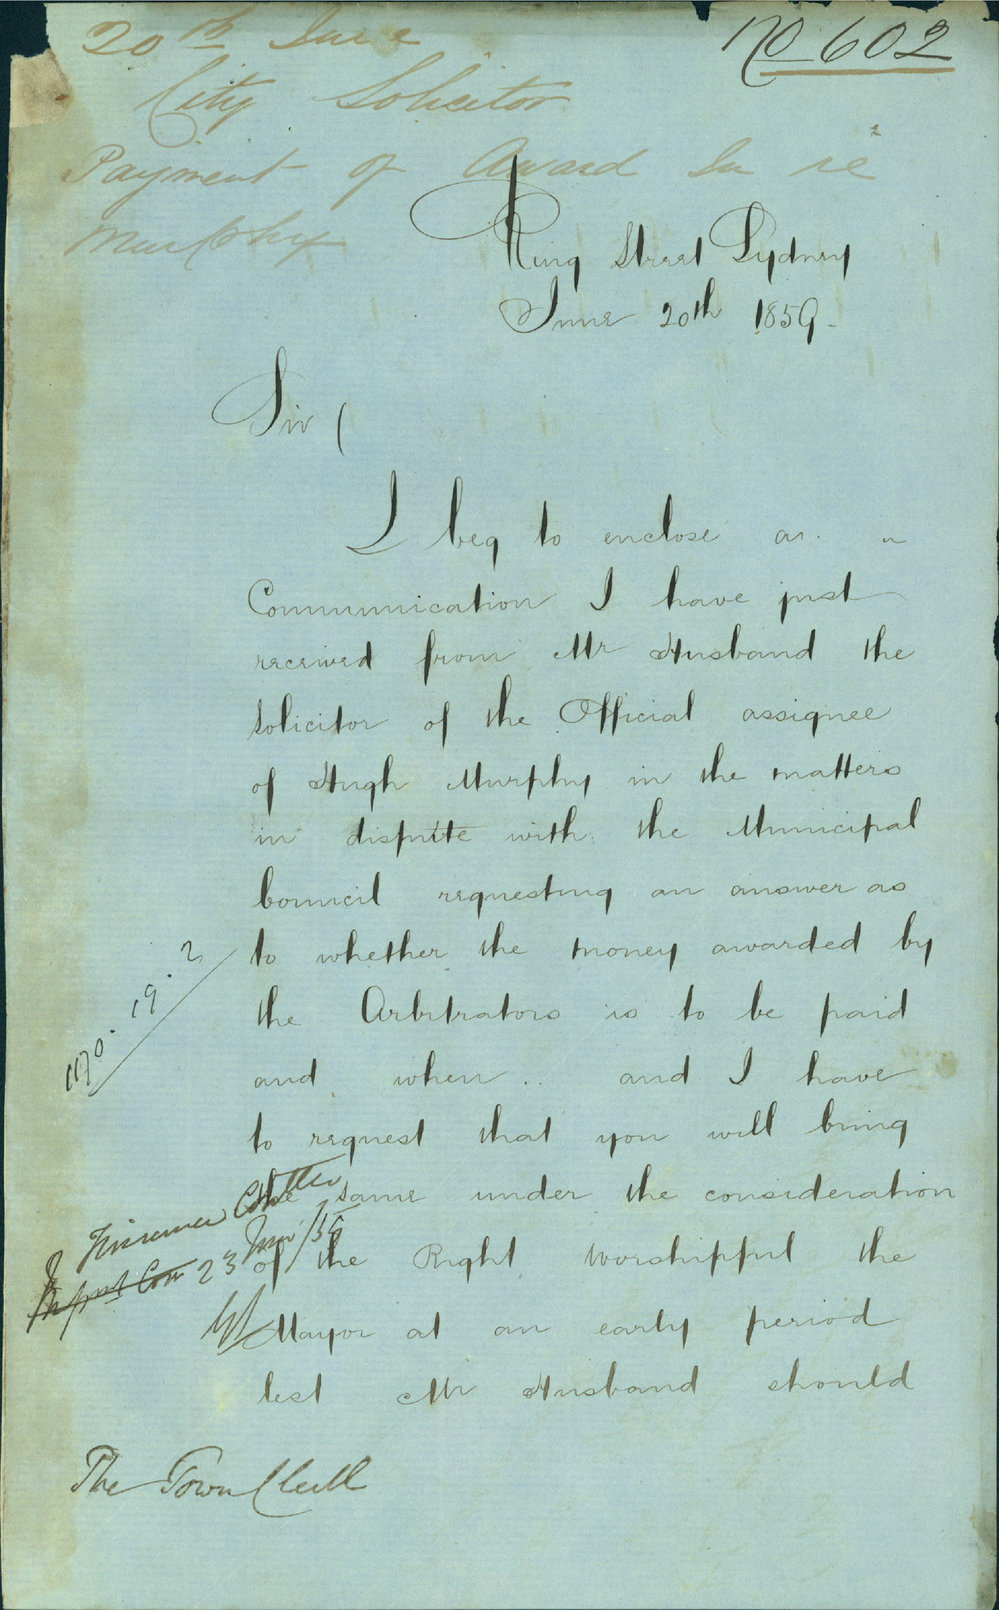 20th June
No 602
City Solicitor
Payment of Award In re
Murphy
King Street Sydney
June 20th 1859.
Sir (
I beg to enclose a
Communication I have just
received from Mr Husband the
Solicitor of the Official assignee
of Hugh Murphy in the matters
in dispute with the Municipal
Council requesting an answer as
to whether the money awarded by
1170.19.2
the Arbitrators is to be paid
and when .. and I have
to request that you will bring
the same under the consideration
Finance Cttee
23 June/59
of the Right Worshipful the
Mayor at an early period
lest Mr Husband should
The Town Clerk